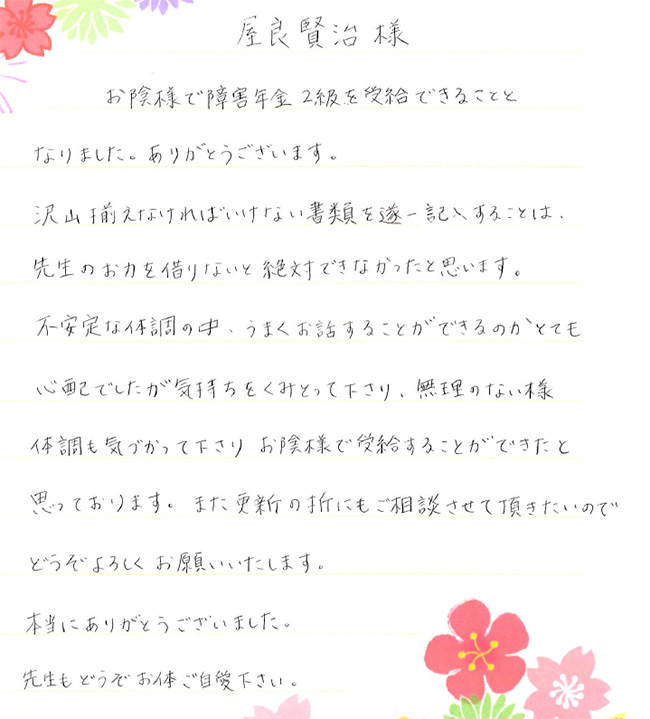 屋良賢治 様
お陰様で障害年金 2級を受給できることと
なりました。ありがとうございます。
沢山揃えなければいけない書類を逐一記入することは、
先生のお力を借りないと絶対できなかったと思います。
不安定な体調の中、うまくお話することができるのかとても
心配でしたが気持ちをくみとって下さり、無理のない様
体調も気づかって下さり お陰様で受給することができたと
思っております。また更新の折にもご相談させて頂きたいので
どうぞよろしくお願いいたします。
本当にありがとうございました。
先生もどうぞお体ご自愛下さい。